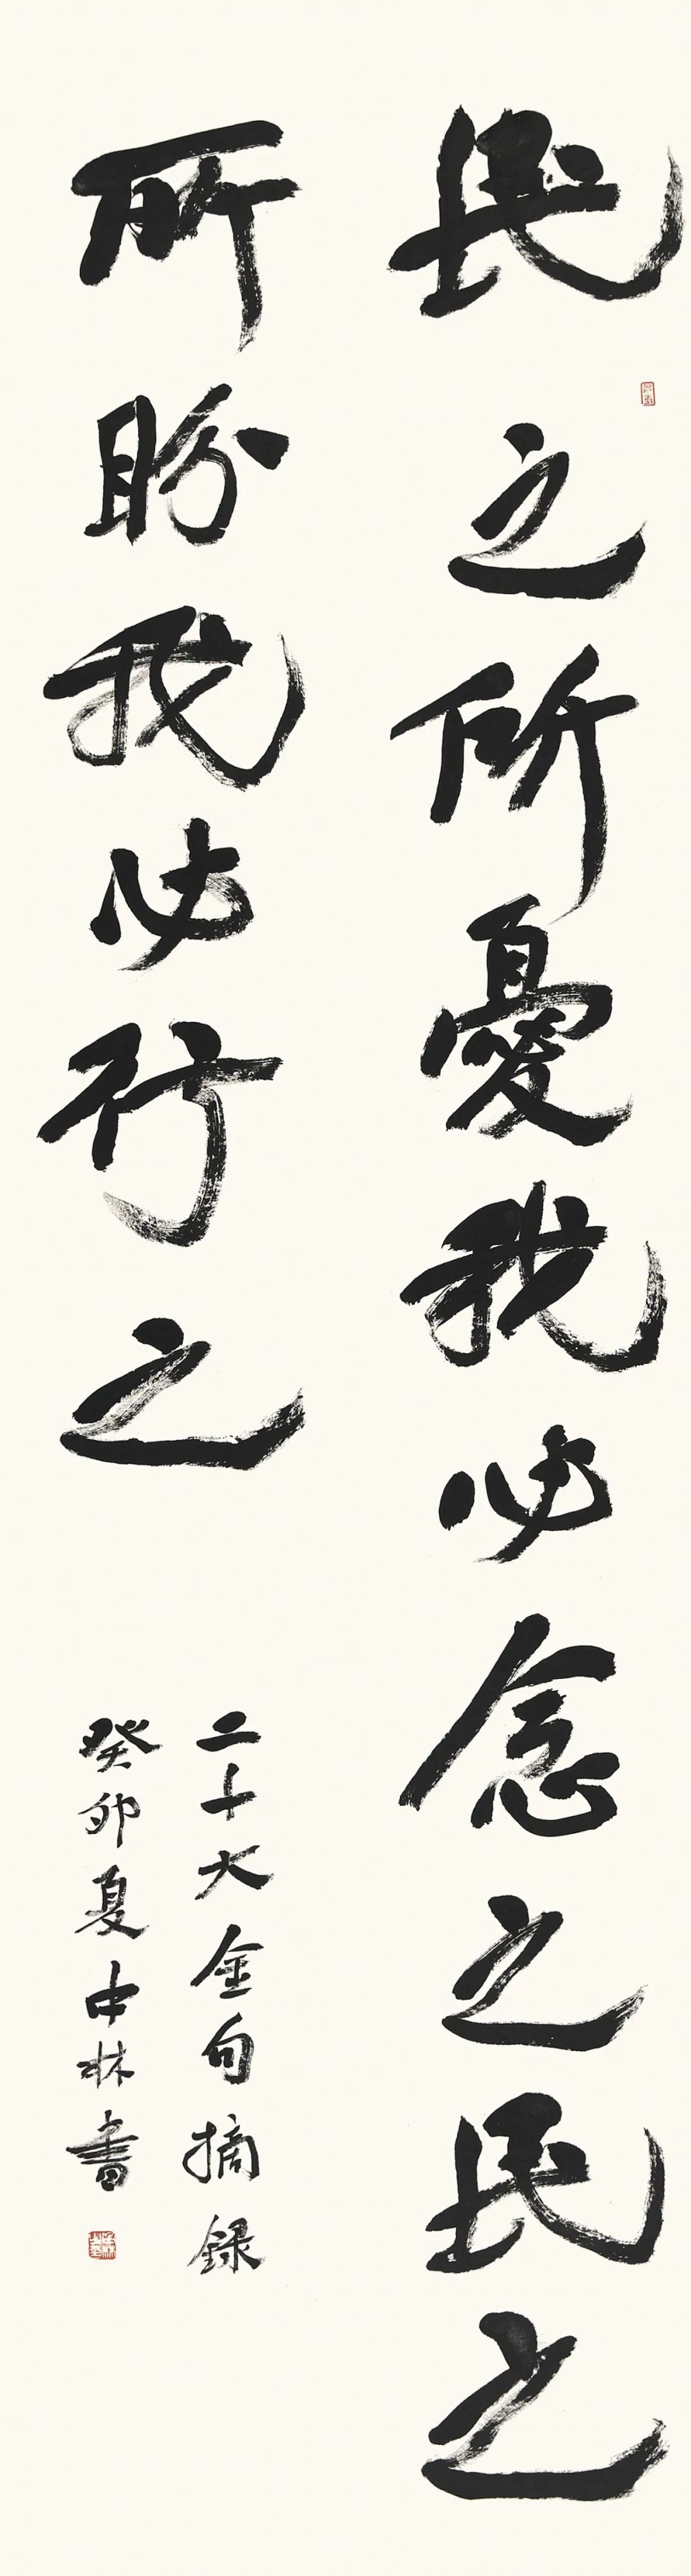 民之所憂我必念之民之
所盼我必行之
二十大金句摘録
癸卯夏中林書